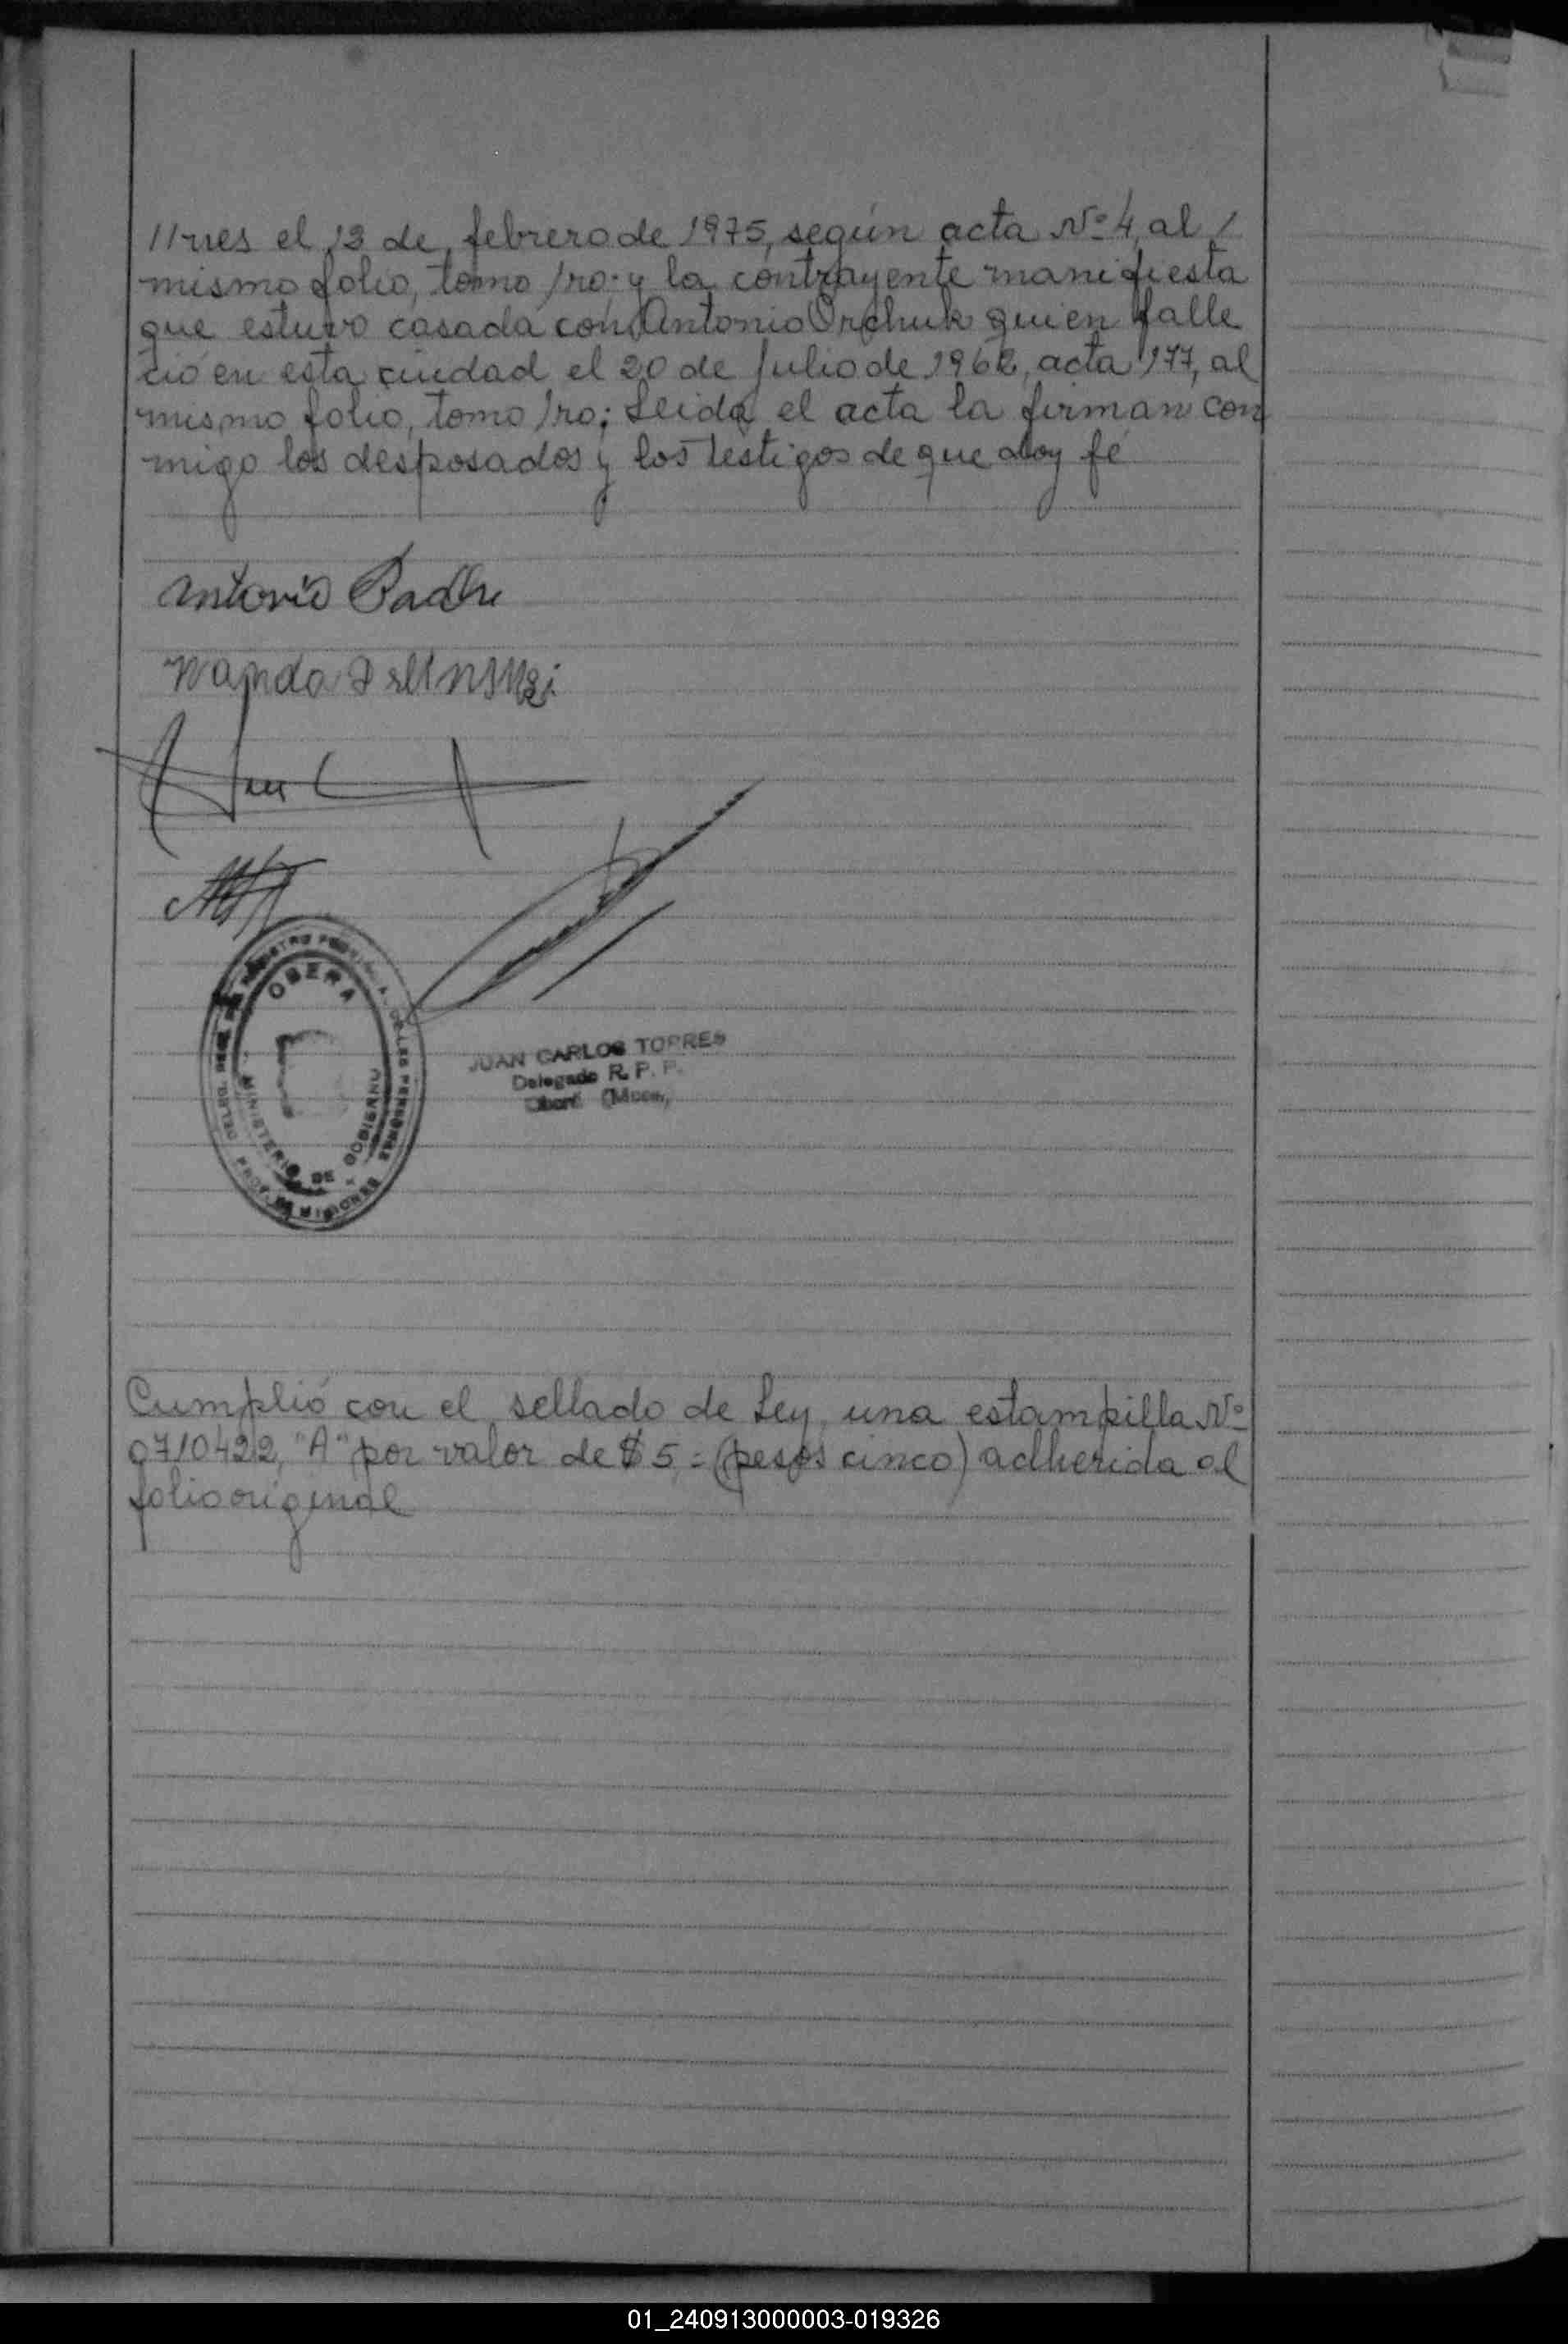 //nes el 13 de febrero de 1975, según acta Nº 4, al /
mismo folio, tomo 1ro. y la contrayente manifiesta
que estuvo casada con Antonio Orchuk quien falle
ció en esta ciudad el 20 de julio de 1962, acta 177, al
mismo folio, tomo 1ro; Leida el acta la firman con
migo los desposados y los testigos de que doy fé
Antonio
Wanda
OBERA
MINISTERIO DE GOBIERNO
PROV. DE MISIONES
JUAN CARLOS TORRES
Delegado R. P. P.
Oberá (Mnes.)
Cumplió con el sellado de Ley, una estampilla Nº
0710422, "A" por valor de $ 5.= (pesos cinco) adherida al
folio original
01_240913000003-019326